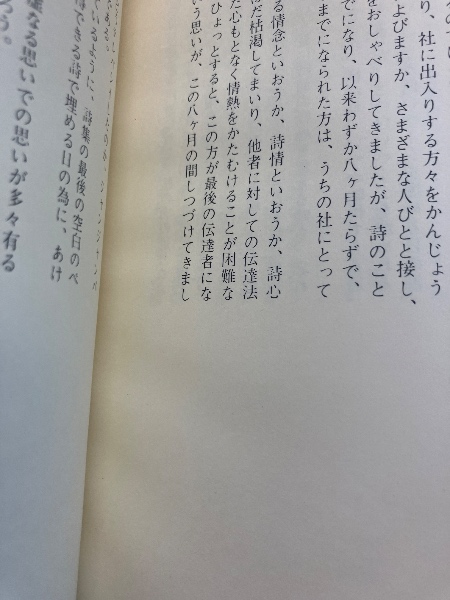 り、社に出入りする方々をかんじょう
よびますか、さまざまな人びとと接し、
をおしゃべりしてきましたが、詩のこと
でになり、以来わずか八ヶ月たらずで、
までになられた方は、うちの社にとって
る情念といおうか、詩情といおうか、詩心
だ枯渇してまいり、他者に対しての伝達法
た心もとなく情熱をかたむけることが困難な
ひょっとすると、この方が最後の伝達者にな
う思いが、この八ヶ月の間しつづけてきまし
ているように、詩集の最後の空白のペ
できる詩で埋める日の為に、あけ
なる思いでの思いが多々有る
ろう。